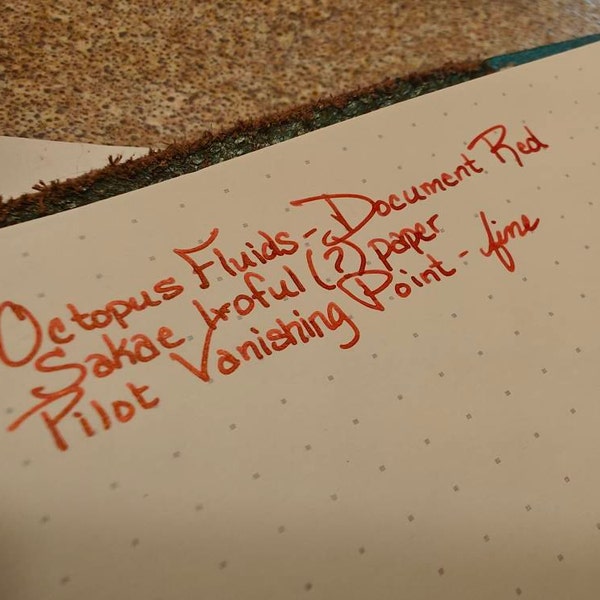 Octopus Fluids - Document Red
Sakae Iroful (?) paper
Pilot Vanishing Point - fine